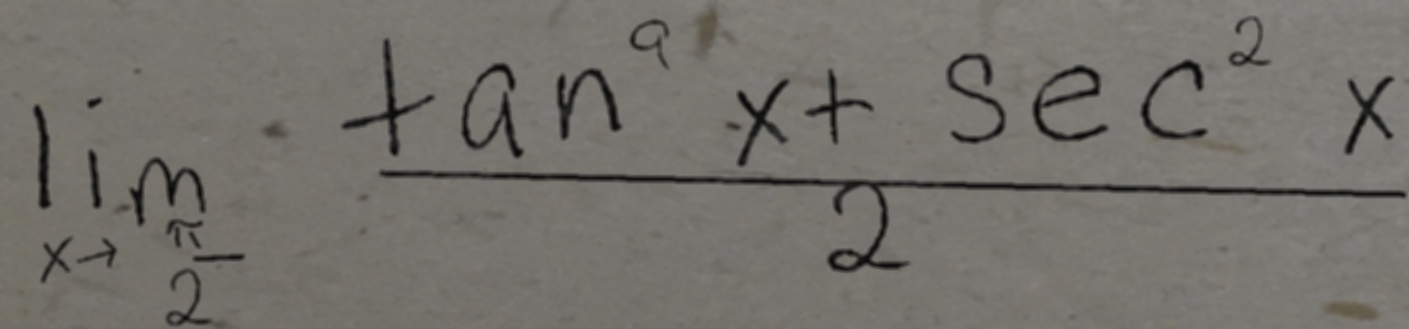 lim x→ π/2 (tan^9 x + sec^2 x)/2